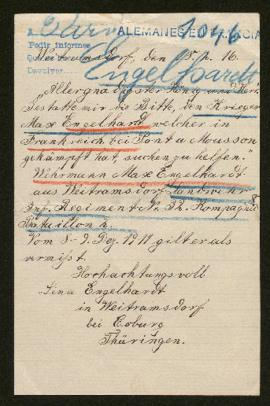 ALEMANES EN FRANCIA
Pedir informes
Devolver
1046
Engelhardt
Weitramsdorf, den 15. 16.
Allergnädigster König und Herr
Gestatte mir die Bitte, den Krieger
Max Engelhardt welcher in
Frankreich bei Pont a Mousson
gekämpft hat, suchen zu helfen.
Wehrmann Max Engelhardt
aus Weitramsdorf Landwehr
Inf. Regiment Kompagnie
Bataillon
Vom 8-9. Dez. gilt er als
vermisst.
Hochachtungsvoll
Lena Engelhardt
in Weitramsdorf
bei Coburg
Thüringen.